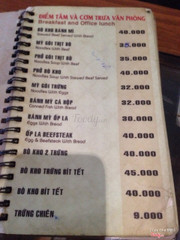 ĐIỂM TÂM VÀ CƠM TRƯA VĂN PHÒNG
Breakfast and Office lunch
BÒ KHO BÁNH MÌ 40.000
MÌ GÓI THỊT BÒ 35.000
Noodles with Beef
PHỞ GÓI THỊT BÒ 35.000
PHỞ BÒ KHO 40.000
MÌ GÓI TRỨNG 32.000
Noodles with Eggs
BÁNH MÌ CÁ HỘP 32.000
BÁNH MÌ ỐP LA 30.000
ỐP LA BEEFSTEAK 40.000
Egg & Beefsteak with Bread
BÒ KHO 2 TRỨNG 40.000
BÒ KHO TRỨNG HÍT TẾT 45.000
BÒ KHO HÍT TẾT 40.000
TRỨNG CHIÊN 9.000